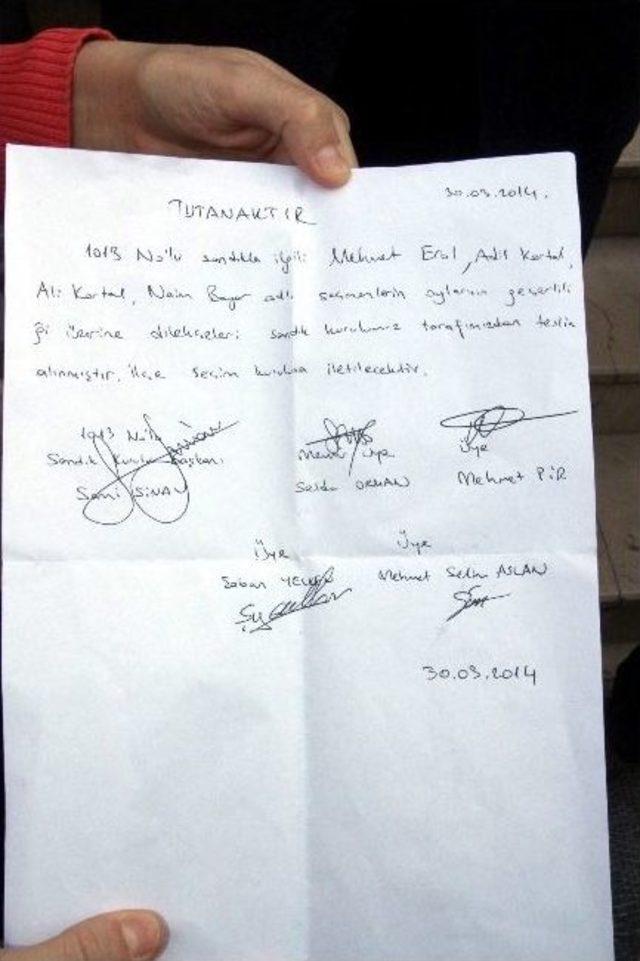 30.03.2014.
TUTANAKTIR
1013 No'lu sandıkla ilgili Mehmet Erol, Adil Kartal,
Ali Kartal, Naim Bayar adlı seçmenlerin oylarının geçerlili
ği üzerine dilekçeleri sandık kurulumuz tarafımızdan teslim
alınmıştır. İlçe seçim kuruluna iletilecektir.
1013 No'lu
Sandık Kurulu Başkanı
Sami SİNAV
Memur Üye
Selda ORHAN
Üye
Mehmet PİR
Üye
Şaban
Üye
Mehmet Selim ASLAN
30.03.2014